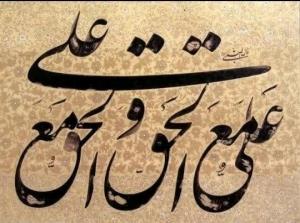 علی مع الحق و الحق مع علی